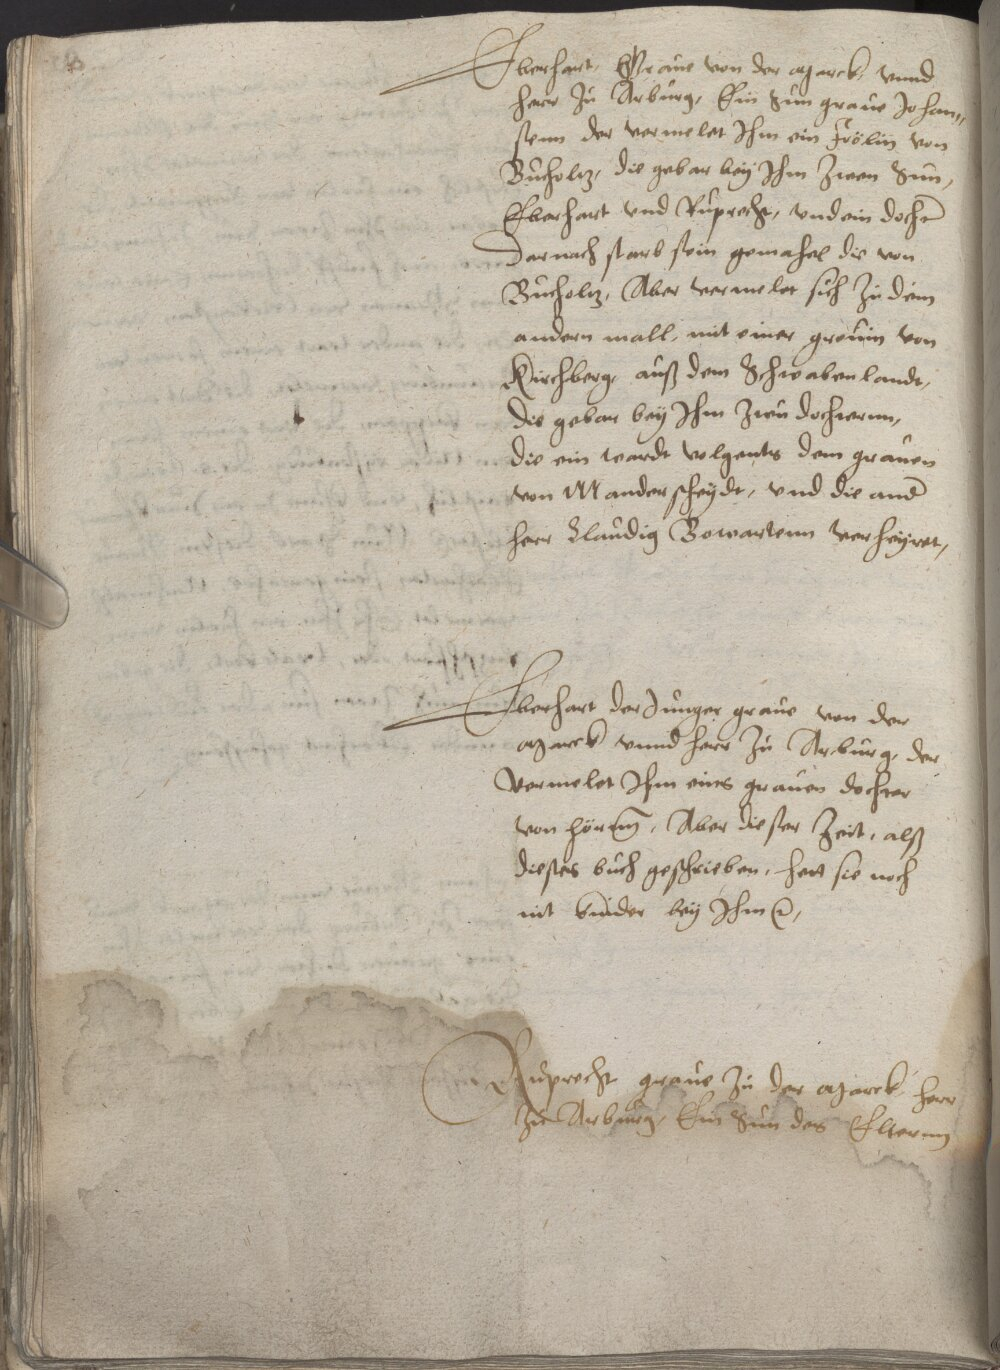 Eberhart, Graue von der Marck, vnnd
herr zu Arburg, Ein Sun graue Johan„
senn der vermelet Ihm ein frölin von
Bucholtz, die gebar bey Ihm Zwen Sun,
Eberhart vnd Ruprecht, vnd ein docht
Darnach starb sein gemahel die von
Bucholtz, Aber vermelet sich zu dem
andern mall, mit einer greuin von
Kirchberg, auß dem Schwabenlandt,
die gebar bey Ihm Zwu dochternn,
die ein wardt volgents dem grauen
von Manderscheydt, vnd die and
herr Claudig Bowartenn verheyret,
Eberhart der Junger graue von der
Marck vnnd herr zu Arburg, der
vermelet Ihm eins grauen dochter
von hörnn, Aber dieser Zeit, alß
dieses buch geschrieben, hat sie noch
nit kinder bey Ihm,
Ruprecht graue zu der Marck herr
zu Arburg, Ein Sun des Elternn